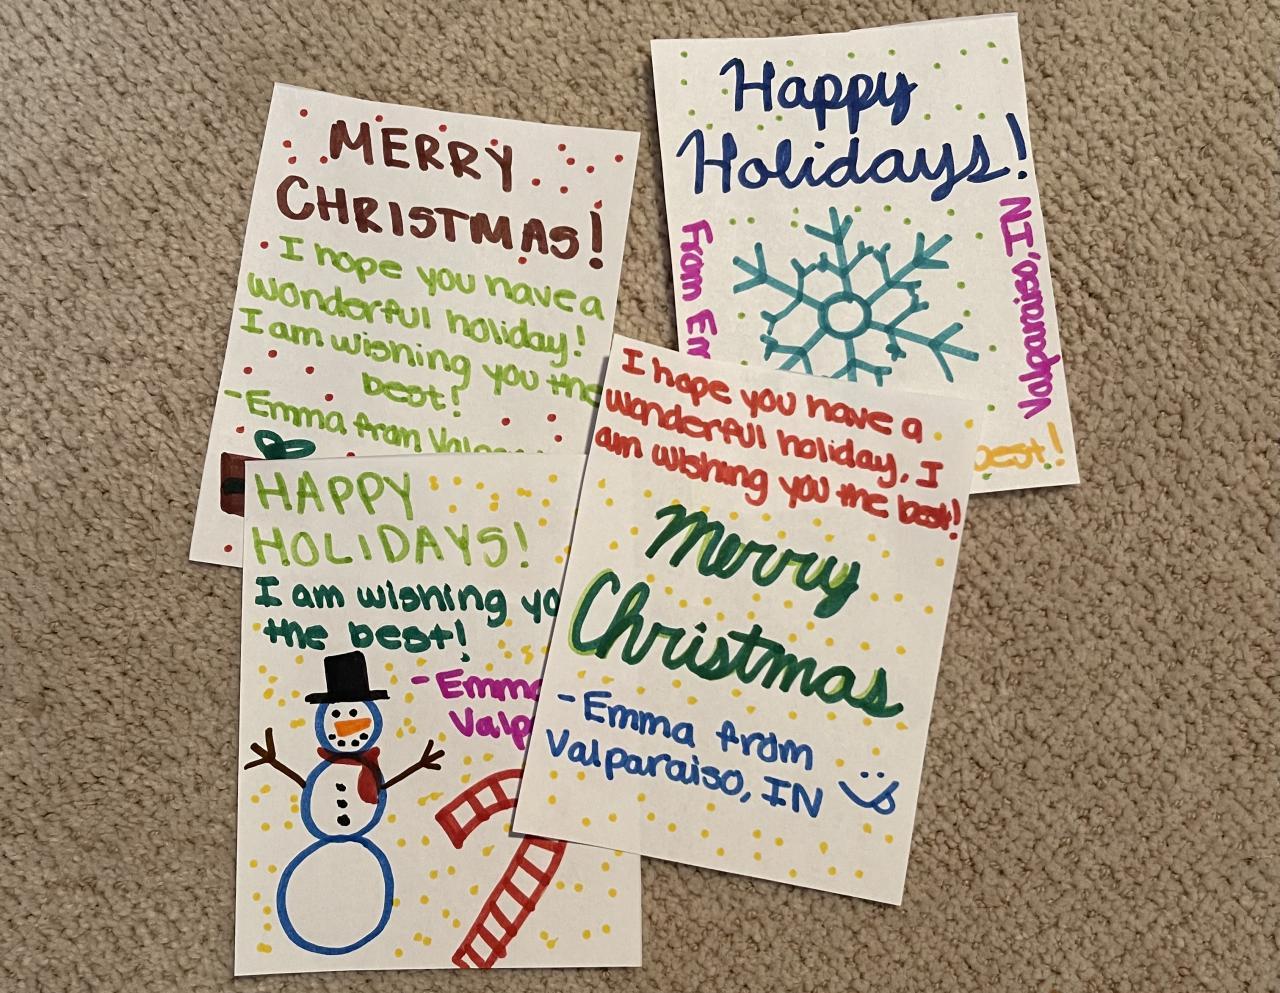 MERRY
CHRISTMAS!
I hope you have a
wonderful holiday!
I am wishing you the
best!
-Emma from
Happy
Holidays!
From
Valparaiso, IN
best!
HAPPY
HOLIDAYS!
I am wishing
the best!
-Emma
I hope you have a
wonderful holiday, I
am wishing you the best!
Merry
Christmas
-Emma from
Valparaiso, IN